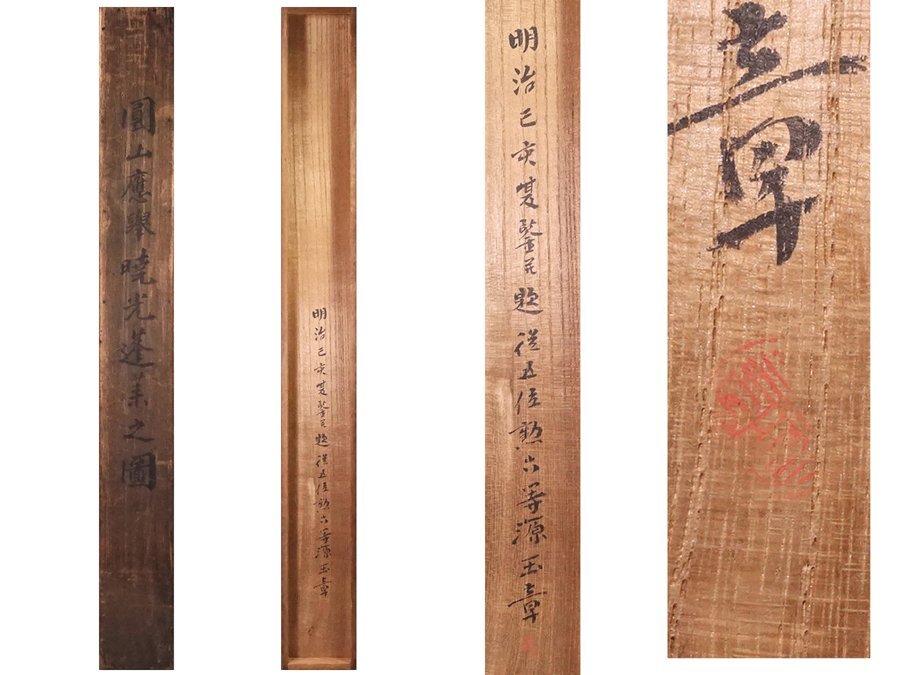 圓山應舉曉光蓬莱之圖
明治己亥夏鑒定題從五位勲六等源玉章
明治己亥夏鑒定題從五位勲六等源玉章
章